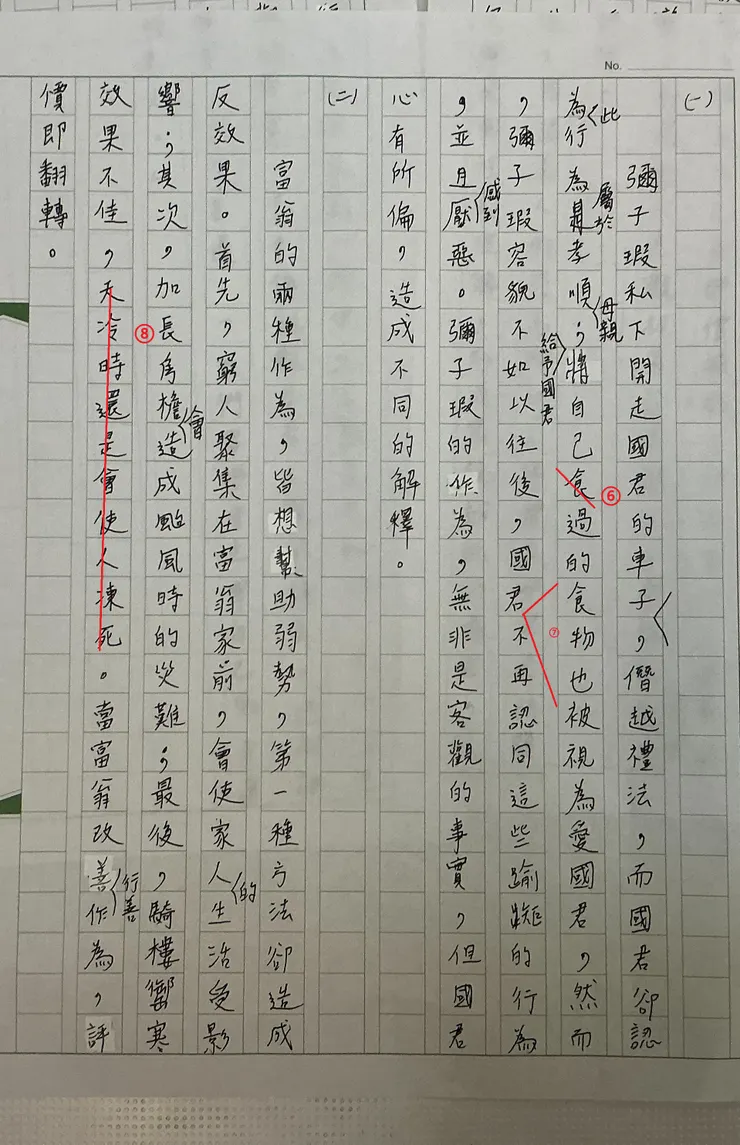 No.
(一)
彌子瑕私下開走國君的車子,僭越禮法,而國君卻認
為此行為屬於孝順;將母親自己食過的食物也被視為愛國君,然而
,彌子瑕容貌不如以往後,國君不再認同這些踰矩的行為
給予國君
⑥
⑦
,並且感到厭惡。彌子瑕的作為,無非是客觀的事實,但國君
心有所偏,造成不同的解釋。
(二)
富翁的兩種作為,皆想幫助弱勢,第一種方法卻造成
反效果。首先,窮人聚集在富翁家前,會使家人的生活受影
響;其次,加長角檐會造成颱風時的災難;最後,騎樓響寒
⑧
效果不佳,天冷時還是會使人凍死。當富翁改善行善作為,評
價即翻轉。